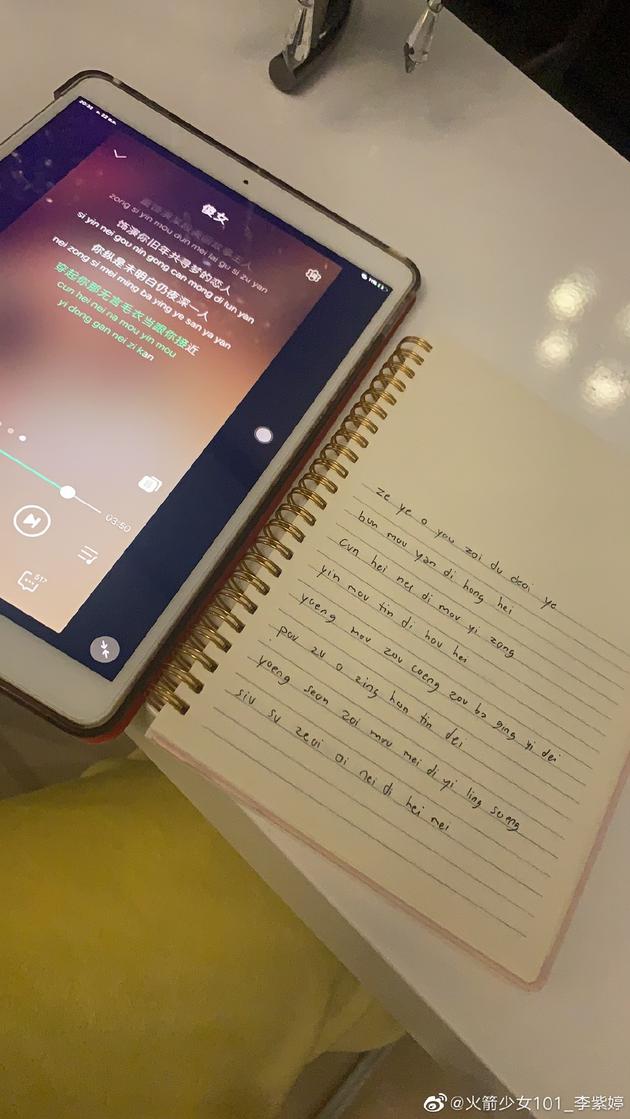 傻女
zong si yin mou dun mei lai gu si zu yan
饰演你旧年共寻梦的恋人
si yin nei gou nin gong can mong di lun yan
你纵是未明白仍夜深一人
nei zong si mei ming ba ying ye san ya yan
穿起你那无言毛衣当跟你接近
cun hei nei na mou yin mou
yi dong gan nei zi kan
03:50
517
ze ye o you zoi du
ye
hun mou yan di hong hei
cun hei nei di mou yi zong
yin mou tin di hou hei
yueng mou zou coeng zou ba ging yi dei
pou zu o zing hun tin dei
yueng seon zoi mou mei di yi ling soeng
siu su zeoi oi nei di hei mei
@火箭少女101_李紫婷